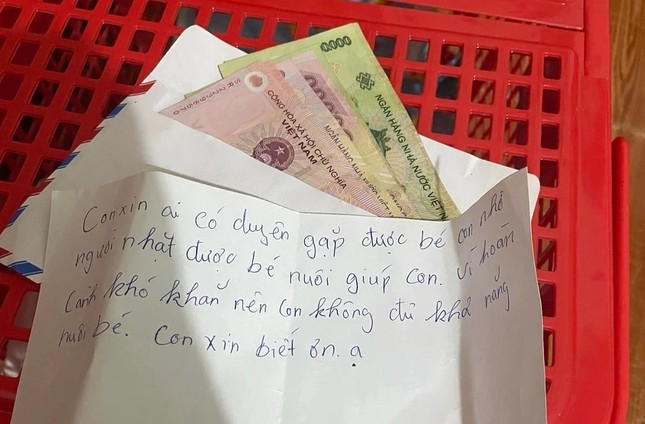 0.000
NGÂN HÀNG NHÀ NƯỚC VIỆT
CỘNG HÒA XÃ HỘI CHỦ NGHĨA
VIỆT NAM
Con xin ai có duyên gặp được bé con nhờ
người nhặt được bé nuôi giúp con. Vì hoàn
Cảnh khó khăn nên con không đủ khả năng
nuôi bé. Con xin biết ơn. ạ